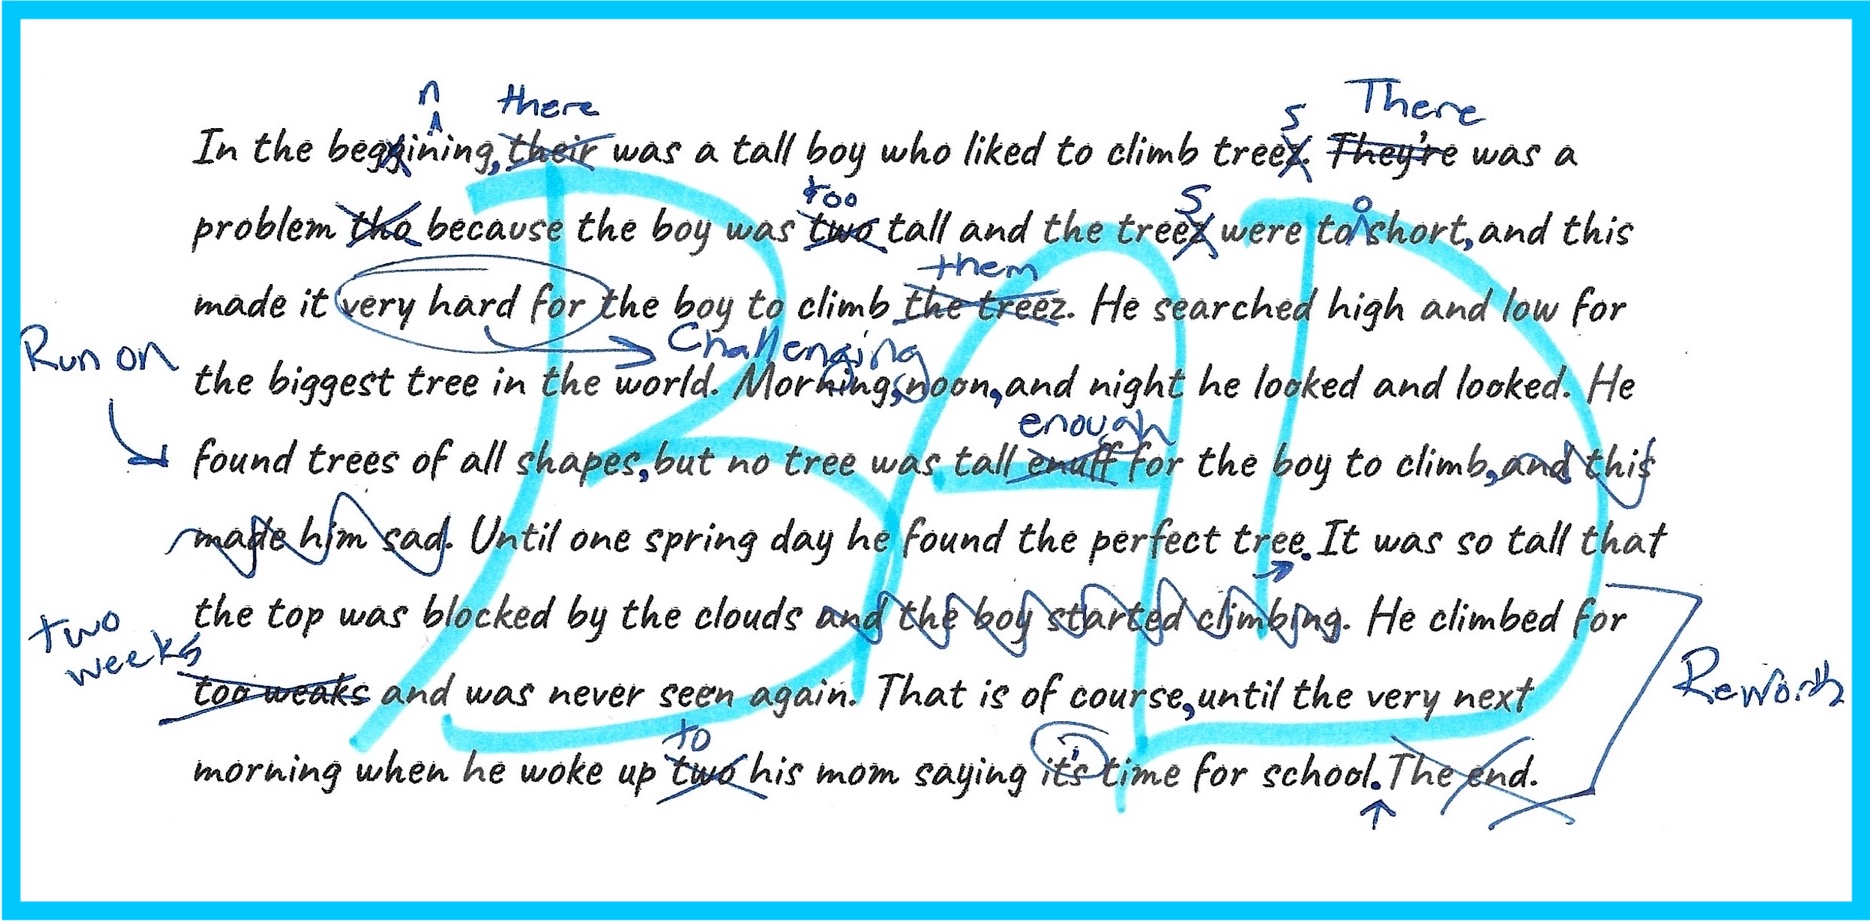 n there s There
In the beggining, their was a tall boy who liked to climb treez. They're was a
too s o
problem tho because the boy was two tall and the treez were to short, and this
them
made it very hard for the boy to climb the treez. He searched high and low for
Run on Challenging
the biggest tree in the world. Morning, noon, and night he looked and looked. He
enough
found trees of all shapes, but no tree was tall enuff for the boy to climb, and this
made him sad. Until one spring day he found the perfect tree. It was so tall that
the top was blocked by the clouds and the boy started climbing. He climbed for
two
weeks
too weaks and was never seen again. That is of course, until the very next
Reword
to
morning when he woke up two his mom saying it's time for school. The end.
BAD